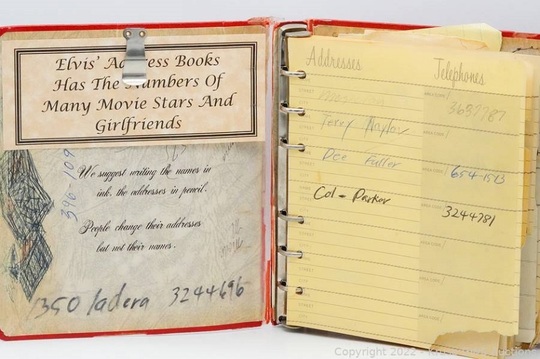 Elvis' Address Books
Has The Numbers Of
Many Movie Stars And
Girlfriends
396-109
We suggest writing the names in
ink, the addresses in pencil.
People change their addresses
but not their names.
1350 ladera 3244696
Addresses Telephones
3637787
Terry
Dee Fuller 654-1513
Col - Parker 3244781
Copyright 2022